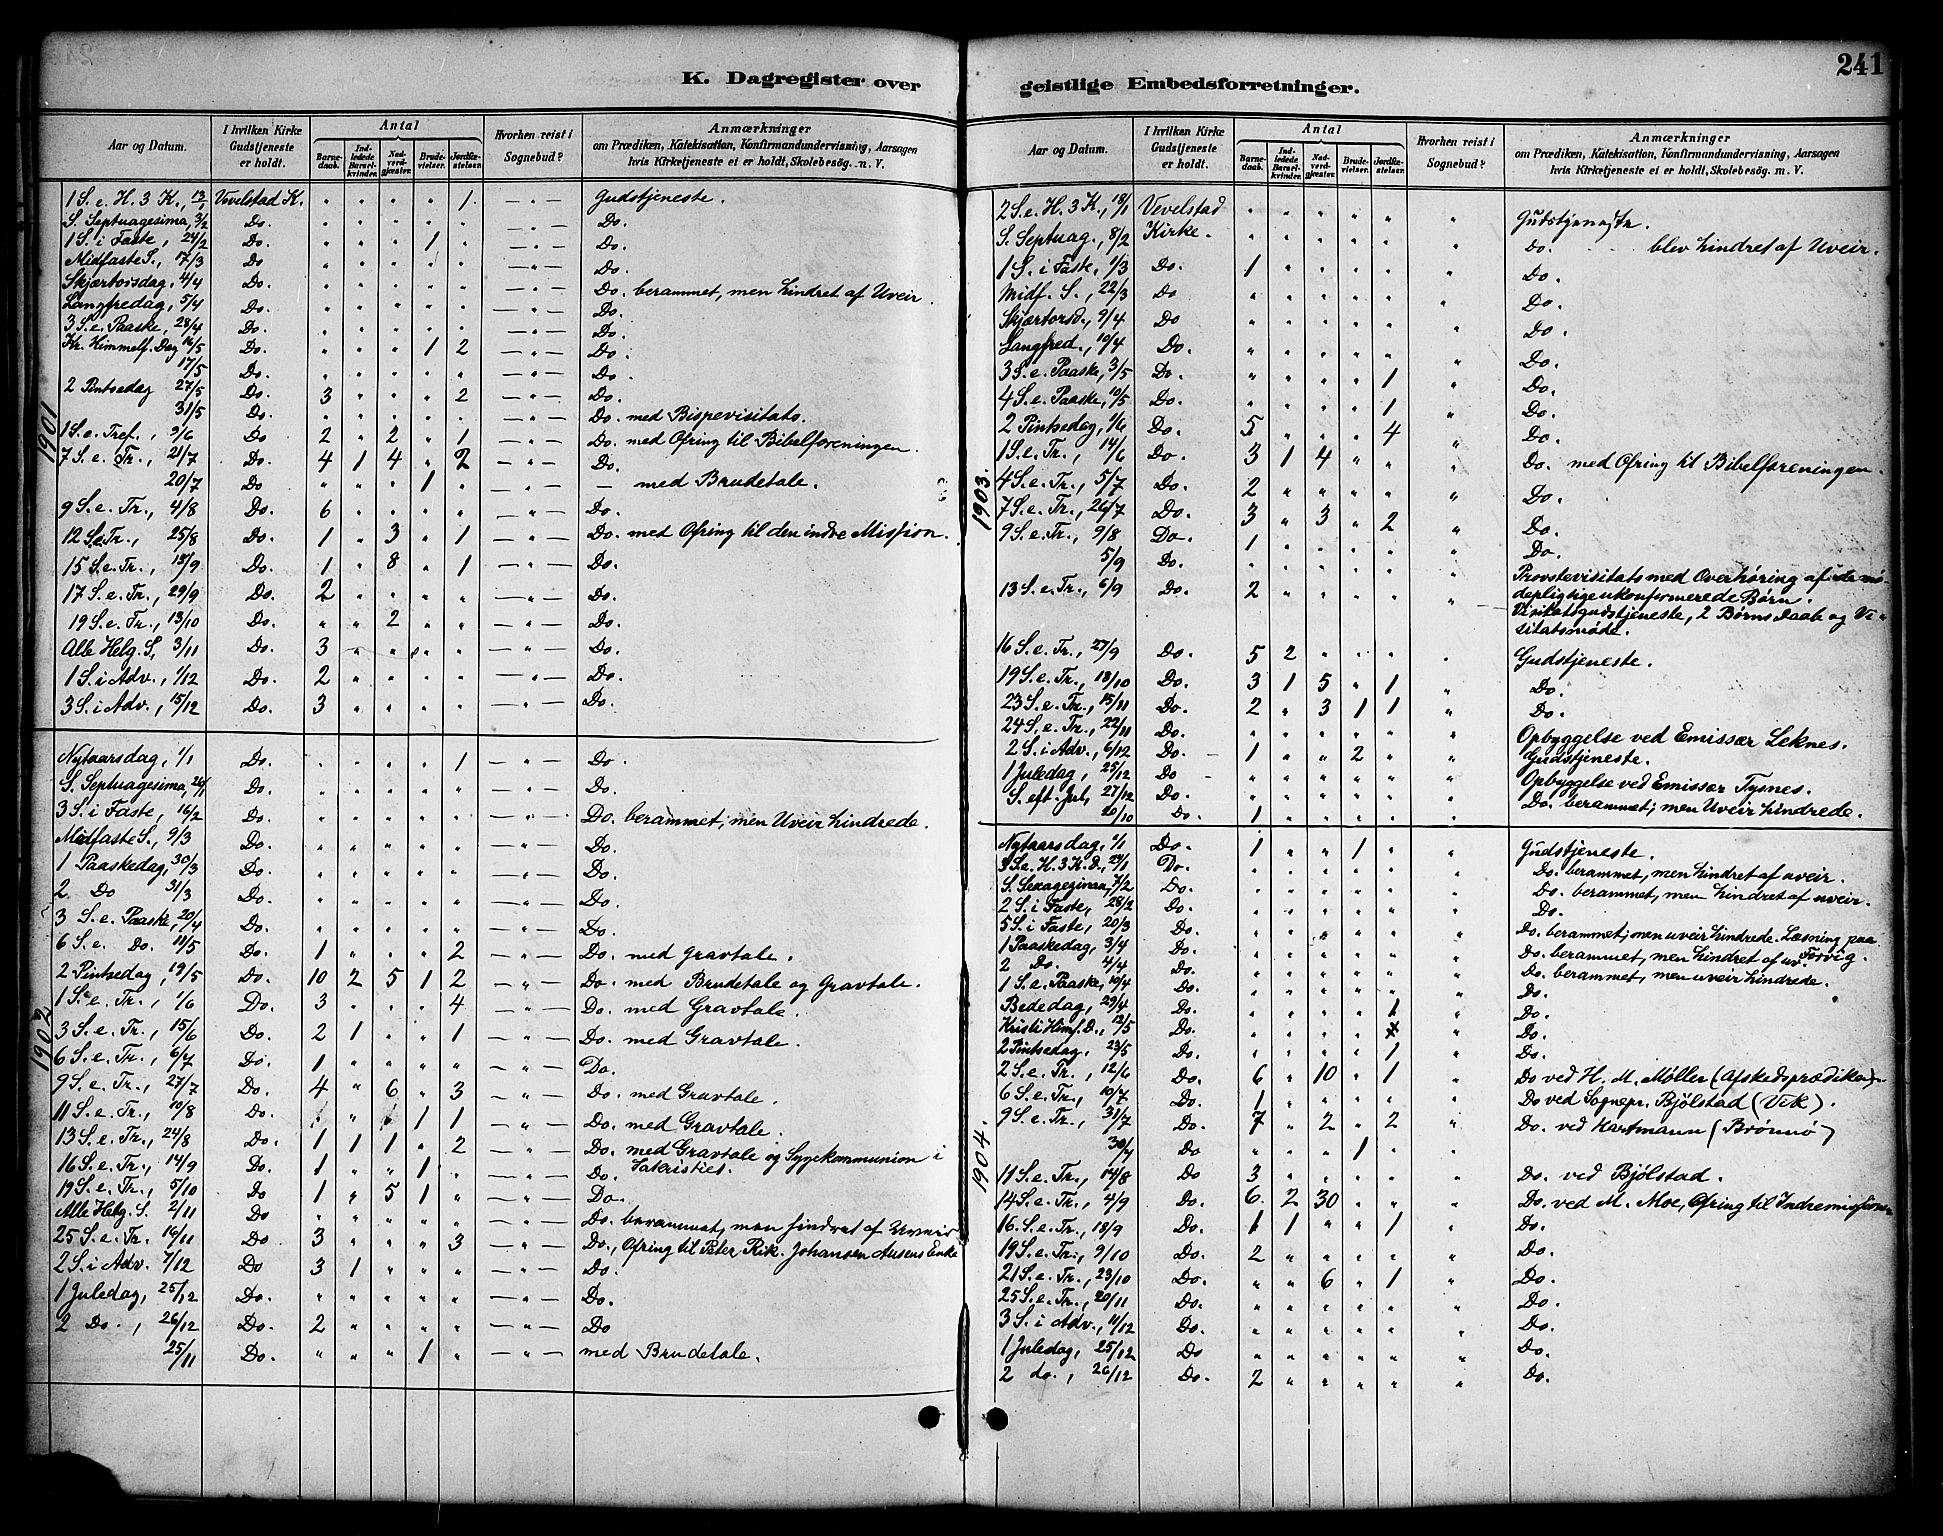 K. Dagregister over
Aar og Datum. I hvilken Kirke Gudstjeneste er holdt. Antal Barnedaab. Indledede Barselkvinder. Nadverdgjæster. Brudevielser. Jordfæstelser. Hvorhen reist i Sognebud? Anmærkninger om Prædiken, Katekisation, Konfirmandundervisning, Aarsagen hvis Kirketjeneste ei er holdt, Skolebesøg. m. V.
1901
1 S. e. H. 3 K., 13/1 Vevelstad K. " " " " 1 — " — Gudstjeneste.
S. Septuagesima, 3/2 Do. " " " " " — " — Do.
1 S. i Faste, 24/2 Do. " " " 1 " — " — Do.
Midfaste S., 17/3 Do " " " " " — " — Do.
Skjærtorsdag, 4/4 Do. " " " " " — " — Do. berammet, men hindret af Uveir.
Langfredag, 5/4 Do. " " " " " — " — Do.
3 S. e. Paaske, 28/4 Do. " " " " " — " — Do.
Kr. Himmelf. Dag 16/5 Do. " " " 1 2 — " — Do.
17/5 Do. " " " " " — " — Do.
2 Pintsedag 27/5 Do. 3 " " " 2 — " — Do.
31/5 Do. " " " " " — " — Do. med Bispevisitats.
1 S. e. Tref., 9/6 Do 2 " 2 " 1 — " — Do. med Ofring til Bibelforeningen.
7 S. e. Tr., 21/7 Do. 4 1 4 " 2 — " — Do.
20/7 Do " " " 1 " — " — — med Brudetale.
9 S. e. Tr., 4/8 Do. 6 " " " " — " — Do.
12 S. e. Tr., 25/8 Do. 1 " 3 " 1 — " — Do. med Ofring til den indre Mission.
15 S. e. Tr., 15/9 Do. 1 " 8 " 1 — " — Do.
17 S. e. Tr., 29/9 Do. 2 " " " " — " — Do.
19 S. e. Tr., 13/10 Do. " " 2 " " — " — Do.
Alle Helg. S., 3/11 Do. 3 " " " " — " — Do.
1 S. i Adv., 1/12 Do. 2 " " " " — " — Do.
3 S. i Adv., 15/12 Do. 3 " " " " — " — Do.
1902
Nytaarsdag, 1/1 Do. " " " " 1 — " — Do.
S. Septuagesima, 26/1 Do. " " " " " — " — Do.
3 S. i Faste, 16/2 Do. " " " " " — " — Do. berammet, men Uveir hindrede.
Midfaste S., 9/3 Do. " " " " " — " — Do.
1 Paaskedag, 30/3 Do. " " " " " — " — Do.
2 Do 31/3 Do. " " " " " — " — Do.
3 S. e. Paaske, 20/4 Do. " " " " " — " — Do.
6 S. e. Do. 11/5 Do. 1 " " " 2 — " — Do. med Gravtale.
2 Pintsedag, 19/5 Do. 10 2 5 1 2 — " — Do. med Brudetale og Gravtale.
1 S. e. Tr., 1/6 Do. 3 " " " 4 — " — Do. med Gravtale.
3 S. e. Tr., 15/6 Do. 2 1 " " 1 — " — Do. med Gravtale.
6 S. e. Tr., 6/7 Do. 1 " " " " — " — Do.
9 S. e. Tr., 27/7 Do. 4 " 6 " 3 — " — Do. med Gravtale.
11 S. e. Tr., 10/8 Do. " " " 1 1 — " — Do. med Gravtale.
13 S. e. Tr., 24/8 Do. 1 1 1 " 2 — " — Do. med Gravtale og Sygekommunion i Sakristiet.
16 S. e. Tr., 14/9 Do. 1 " " 1 " — " — Do.
19 S. e. Tr., 5/10 Do 1 " 5 1 " — " — Do.
Alle Helg. S. 2/11 Do " " " " " — " — Do. berammet, men hindret af Uveir
25 S. e. Tr. 16/11 Do. 3 " " " 3 — " — Do., Ofring til Peter Rik. Johansen Ausens Enke
2 S. i Adv. 7/12 Do 3 1 " " " — " — Do.
1 Juledag, 25/12 Do. " " " " " — " — Do.
2 Do., 26/12 Do. 2 " " " " — " — Do
25/11 Do. " " " 1 " — " — med Brudetale.
geistlige Embedsforretninger. 241
Aar og Datum. I hvilken Kirke Gudstjeneste er holdt. Antal Barnedaab. Indledede Barselkvinder. Nadverdgjæster. Brudevielser. Jordfæstelser. Hvorhen reist i Sognebud? Anmærkninger om Prædiken, Katekisation, Konfirmandundervisning, Aarsagen hvis Kirketjeneste ei er holdt, Skolebesøg. m. V.
1903.
2 S. e. H. 3 K., 18/1 Vevelstad " " " " " " Gudstjeneste.
S. Septuag., 8/2 Kirke. " " " " " " Do. blev hindret af Uveir.
1 S. i Faste, 1/3 Do. 1 " " " " " Do.
Midf. S., 22/3 Do " " " " " " Do.
Skjærtorsd., 9/4 Do " " " " " " Do.
Langfred., 10/4 Do. " " " " " " Do.
3 S. e. Paaske, 3/5 Do. " " " " 1 " Do.
4 S. e. Paaske, 10/5 Do. " " " " 1 " Do.
2 Pintsedag, 1/6 Do. 5 " " " 4 " Do.
1 S. e. Tr., 14/6 Do. 3 1 4 " " " Do. med Ofring til Bibelforeningen.
4 S. e. Tr., 5/7 Do. 2 " " " " " Do.
7 S. e. Tr., 26/7 Do. 3 " 3 " 2 " Do.
9 S. e. Tr., 9/8 Do. 1 " " " " " Do.
5/9 Do. " " " " " " Provstevisitats med Overhøring af de mødepligtige ukonfirmerede Børn.
13 S. e. Tr., 6/9 Do. 2 " " " " " Visitatsgudstjeneste, 2 Børns Daab og Visitatsmøde.
16 S. e. Tr., 27/9 Do. 5 2 " " " " Gudstjeneste.
19 S. e. Tr., 18/10 Do. 3 1 5 " 1 " Do.
23 S. e. Tr., 15/11 Do. 2 " 3 1 1 " Do.
24 S. e. Tr., 22/11 Do. " " " " " " Opbyggelse ved Emissær Leknes.
2 S. i Adv., 6/12 Do. 1 " " 2 " " Gudstjeneste.
1 Juledag, 25/12 Do " " " " " " Opbyggelse ved Emissær Tysnes.
S. eft. Jul, 27/12 Do. " " " " " " Do. berammet; men Uveir hindrede.
20/10 Do. 1 " " " " "
1904.
Nytaarsdag, 1/1 Do. 1 " " 1 " " Gudstjeneste.
3 S. e. H. 3 K. D., 24/1 Do. " " " " " " Do. berammet, men hindret af uveir.
S. Sexagesima, 7/2 Do. " " " " " " Do. berammet, men hindret af uveir.
2 S. i Faste, 28/2 Do. " " " " " " Do.
5 S. i Faste, 20/3 Do. " " " " " " Do. berammet; men uveir hindrede. Læsning paa Forvig.
1 Paaskedag, 3/4 Do. " " " " " " Do. berammet, men hindret af uv.
2 Do. 4/4 Do. " " " " " " Do. berammet, men uveir hindrede.
1 S. e. Paaske, 10/4 Do. " " " " " " Do.
Bededag, 29/4 Do. " " " " 1 " Do.
Kristi Himf. D., 12/5 Do. " " " " " Do.
2 Pintsedag, 23/5 Do. " " " " 1 " Do.
2 S. e. Tr., 12/6 Do. 6 " 10 " 1 " Do ved H. M. Møller (Afskedsprædiken).
6 S. e. Tr., 10/7 Do. 1 " " " " " Do ved Sognepr. Bjølstad (Vik).
9 S. e. Tr., 31/7 Do. 7 " 2 " 2 " Do. ved Hartmann (Brønnø)
30/7 Do " " " 1 " "
11 S. e. Tr., 14/8 Do 3 " " " " " Do. ved Bjølstad.
14 S. e. Tr., 4/9 Do. 6. 2 30 " " " Do. ved M. Moe, Ofring til Indremissionen
16. S. e. Tr., 18/9 Do. 1 1 " " 1 " Do.
19 S. e. Tr., 9/10 Do. 2 " " " " " Do.
21 S. e. Tr., 23/10 Do. " " 6 " 1 " Do.
25 S. e. Tr., 20/11 Do. " " " " " " Do.
3 S. i Adv., 11/12 Do. " " " " " " Do.
1 Juledag, 25/12 Do " " " " " " Do.
2 do., 26/12 Do. 2 " " " " " Do.